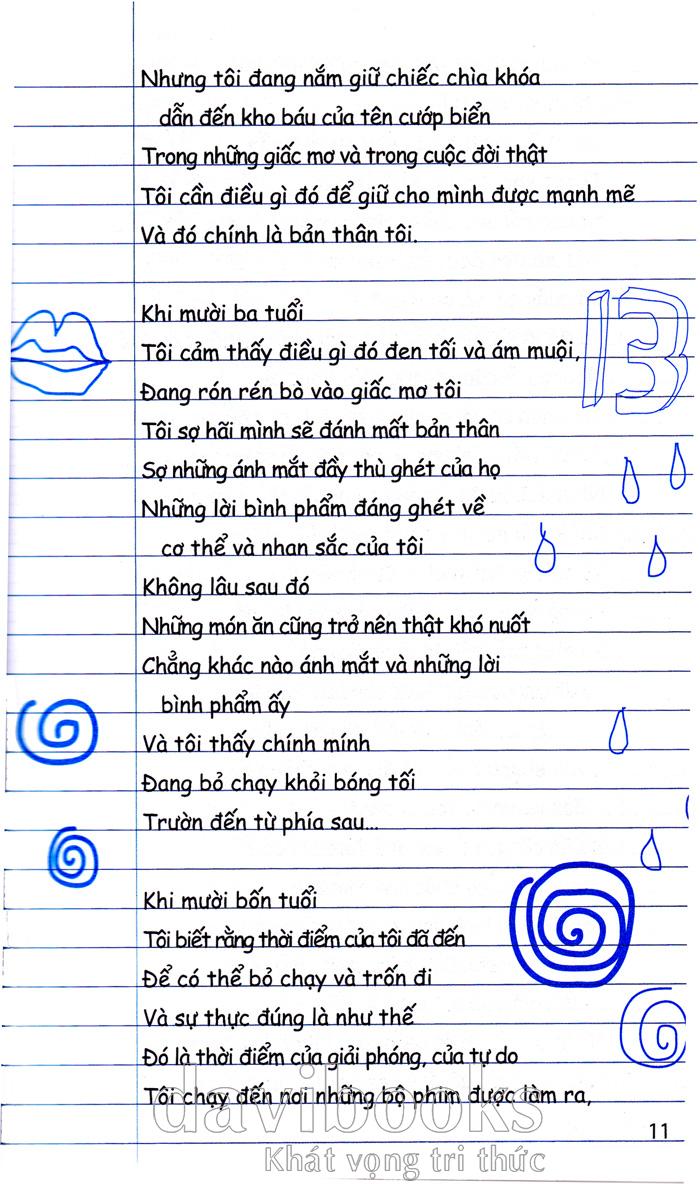 Nhưng tôi đang nắm giữ chiếc chìa khóa
dẫn đến kho báu của tên cướp biển
Trong những giấc mơ và trong cuộc đời thật
Tôi cần điều gì đó để giữ cho mình được mạnh mẽ
Và đó chính là bản thân tôi.
Khi mười ba tuổi
13
Tôi cảm thấy điều gì đó đen tối và ám muội,
Đang rón rén bò vào giấc mơ tôi
Tôi sợ hãi mình sẽ đánh mất bản thân
Sợ những ánh mắt đầy thù ghét của họ
Những lời bình phẩm đáng ghét về
cơ thể và nhan sắc của tôi
Không lâu sau đó
Những món ăn cũng trở nên thật khó nuốt
Chẳng khác nào ánh mắt và những lời
bình phẩm ấy
Và tôi thấy chính mính
Đang bỏ chạy khỏi bóng tối
Trườn đến từ phía sau...
Khi mười bốn tuổi
Tôi biết rằng thời điểm của tôi đã đến
Để có thể bỏ chạy và trốn đi
Và sự thực đúng là như thế
Đó là thời điểm của giải phóng, của tự do
Tôi chạy đến nơi những bộ phim được làm ra,
davibooks
11
Khát vọng tri thức